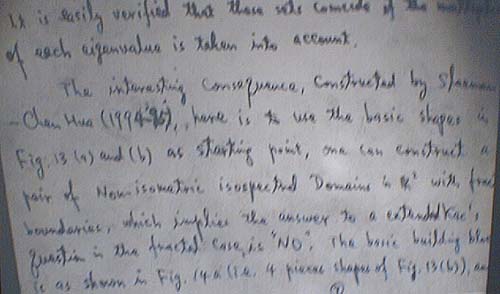 It is easily verified that these sets coincide if the
of each eigenvalue is taken into account.
The interesting Consequence, Constructed by
-Chen Hua (1994-95), here is to use the basic shapes in
Fig. 13 (a) and (b) as starting point, one can construct a
pair of Non-isometric isospectral Domains in R² with
boundaries, which implies the answer to a extended Kac's
question in the fractal case, is "NO". The basic building
is as shown in Fig. 14.a (i.e. 4 pieces shapes of Fig. 13(b)),